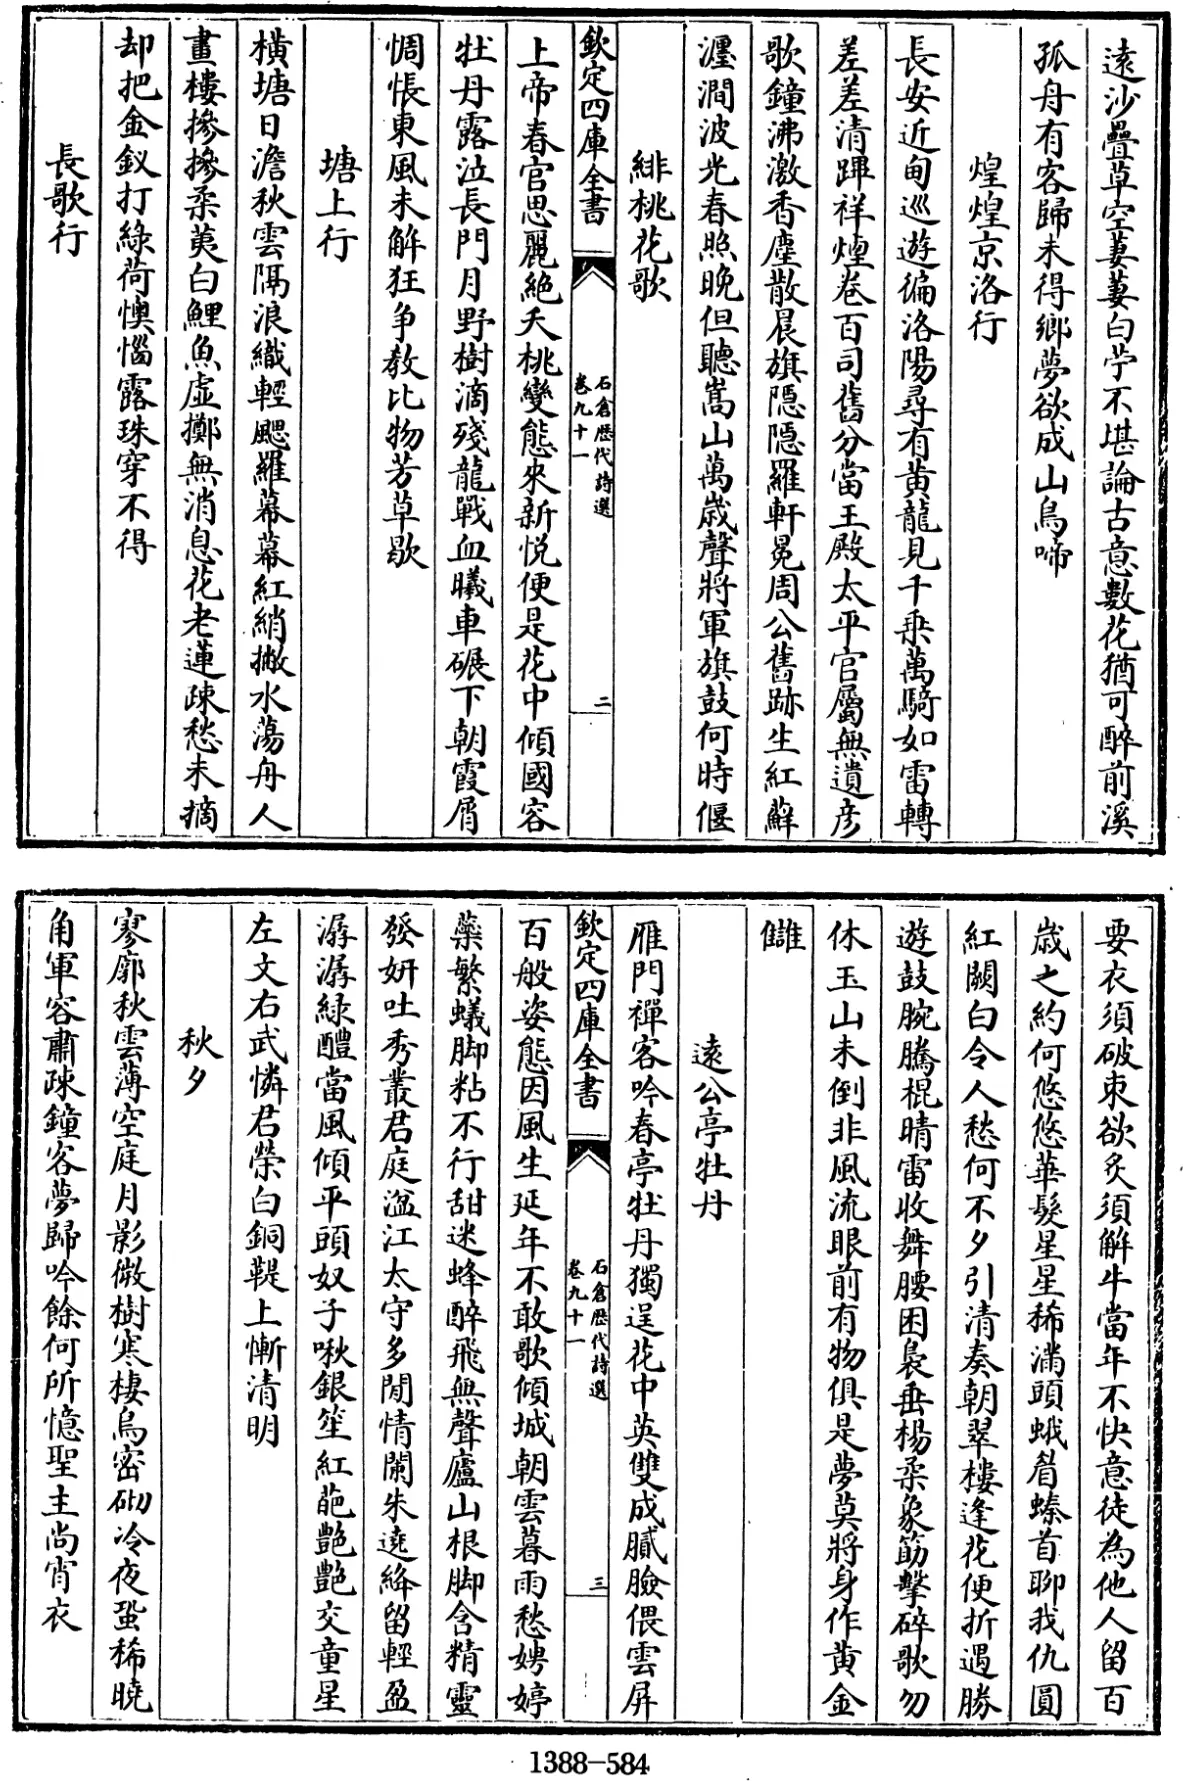 遠沙疊草空萋萋白苧不堪論古意數花猶可醉前溪
孤舟有客歸未得鄉夢欲成山鳥啼
煌煌京洛行
長安近甸巡遊徧洛陽尋有黄龍見千乗萬騎如雷轉
差差清蹕祥煙卷百司舊分當玉殿太平官屬無遺彦
歌鐘沸激香塵散晨旗隠隠羅軒冕周公舊跡生紅蘚
瀍澗波光春照晩但聽嵩山萬歲聲將軍旗鼓何時偃
緋桃花歌
欽定四庫全書
石倉歴代詩選
卷九十一
二
上帝春官思麗絶夭桃變態來新悦便是花中傾國容
牡丹露泣長門月野樹滴殘龍戰血曦車碾下朝霞屑
惆悵東風未解狂争教比物芳草歇
塘上行
橫塘日澹秋雲隔浪織輕颸羅幕幕紅綃撇水蕩舟人
畫樓摻摻柔荑白鯉魚虛擲無消息花老蓮疎愁未摘
却把金釵打綠荷懊惱露珠穿不得
長歌行
要衣須破束欲炙須解牛當年不快意徒為他人留百
歲之約何悠悠華髮星星稀滿頭蛾眉螓首聊我仇圓
紅闕白令人愁何不夕引清奏朝翠樓逢花便折遇勝
遊鼓腕騰棍晴雷收舞腰困裊垂楊柔象筯擊碎歌勿
休玉山未倒非風流眼前有物俱是夢莫將身作黄金
讎
遠公亭牡丹
雁門禪客吟春亭牡丹獨逞花中英雙成膩臉偎雲屏
欽定四庫全書
石倉歴代詩選
卷九十一
三
百般姿態因風生延年不敢歌傾城朝雲暮雨愁娉婷
蘂繁蟻脚粘不行甜迷蜂醉飛無聲廬山根脚含精靈
發妍吐秀叢君庭湓江太守多閒情闌朱遶絳留輕盈
潺潺緑醴當風傾平頭奴子啾銀笙紅葩艷艷交童星
左文右武憐君榮白銅鞮上慚清明
秋夕
寥廓秋雲薄空庭月影微樹寒棲鳥密砌冷夜蛩稀曉
角軍容肅疎鐘客夢歸吟餘何所憶聖主尚宵衣
1388-584